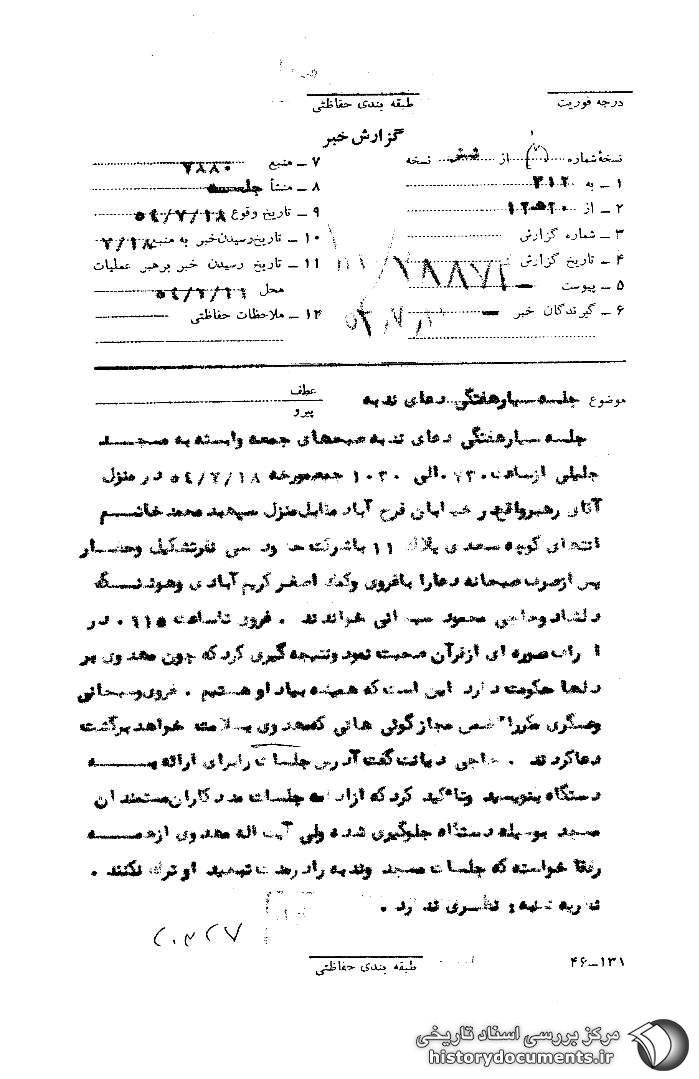 درجه فوریت
طبقه بندی حفاظتی
گزارش خبر
نسخهٔ شماره (۷) از شش نسخه
۱ ــ به ۳۱۲
۲ ــ از ۱۲ ۲۰
۳ ــ شماره گزارش
۴ ــ تاریخ گزارش
۵ ــ پیوست ــ
۶ ــ گیرندگان خبر ــ
۷ ــ منبع ۷۸۸۰
۸ ــ منشأ جلسه
۹ ــ تاریخ وقوع ۵۴/۷/۱۸
۱۰ ــ تاریخ رسیدن خبر به منبع ۷/۱۸
۱۱ ــ تاریخ رسیدن خبر برهبر عملیات
محل
۱۲ ــ ملاحظات حفاظتی
موضوع جلسه سیار هفتگی دعای ندبه
عطف
پیرو
جلسه سیار هفتگی دعای ندبه صبحهای جمعه وابسته به مسجد
جلیلی از ساعت ۰۷۳۰ الی ۱۰۳۰ جمعه مورخه ۵۴/۷/۱۸ در منزل
آقای رهبر واقع در خیابان فرح آباد مقابل منزل سپهبد محمد خاتم
انتهای کوچه سعدی پلاک ۱۱ با شرکت حدود سی نفر تشکیل و حضار
پس از صرف صبحانه دعا را با غروی وکمک اصغر کریم آبادی و هوشنگ
دلشاد و حاجی محمود سبحانی خواندند . غروی تا ساعت ۰۹۱۵ در
اطراف سوره ای از قرآن صحبت نمود و نتیجه گیری کرد که چون مهدوی بر
دلها حکومت دارد این است که همیشه بیاد او هستیم . غروی و سبحانی
و عسگری مکررا ضمن مجاز گوئی هائی که مهدوی بسلامت خواهد برگشت
دعا کردند . حاجی دیانت گفت آدرس جلسات را برای ارائه به
دستگاه بنویسید و تاکید کرد که از ادامه جلسات مددکاران مستمندان
مسجد بوسیله دستگاه جلوگیری شده ولی آیت اله مهدوی از همه
رفقا خواسته که جلسات مسجد و ندبه را در مدت تبعید او ترک نکنند .
نظریه شنبه : نظری ندارد .
طبقه بندی حفاظتی
۱۳۱ــ۴۶
مرکز بررسی اسناد تاریخی
historydocuments.ir